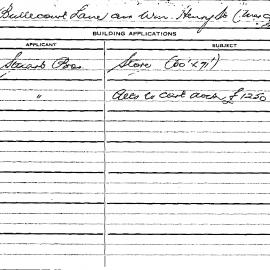 Bullecourt Lane cnr Wm. Henry St (
BUILDING APPLICATIONS
APPLICANT SUBJECT
Stewart Bros Store (60' x 71')
" Alts to cost £1250